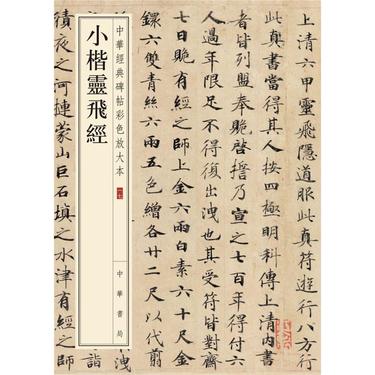 中華經典碑帖彩色放大本
小楷靈飛經
中華書局
上清六甲靈飛隱道服此真符遊行八方行
此真書當得其人按四極明科傳上清內書
者皆列盟奉貺啓誓乃宣之七百年得付六
人過年限足不得復出洩也其受符皆對齋
七日貺有經之師上金六兩白素六十尺金
鐶六雙青絲六兩五色繒各廿二尺以代翦
洩
詣
積夜之河連蒙山巨石塡之水津有經